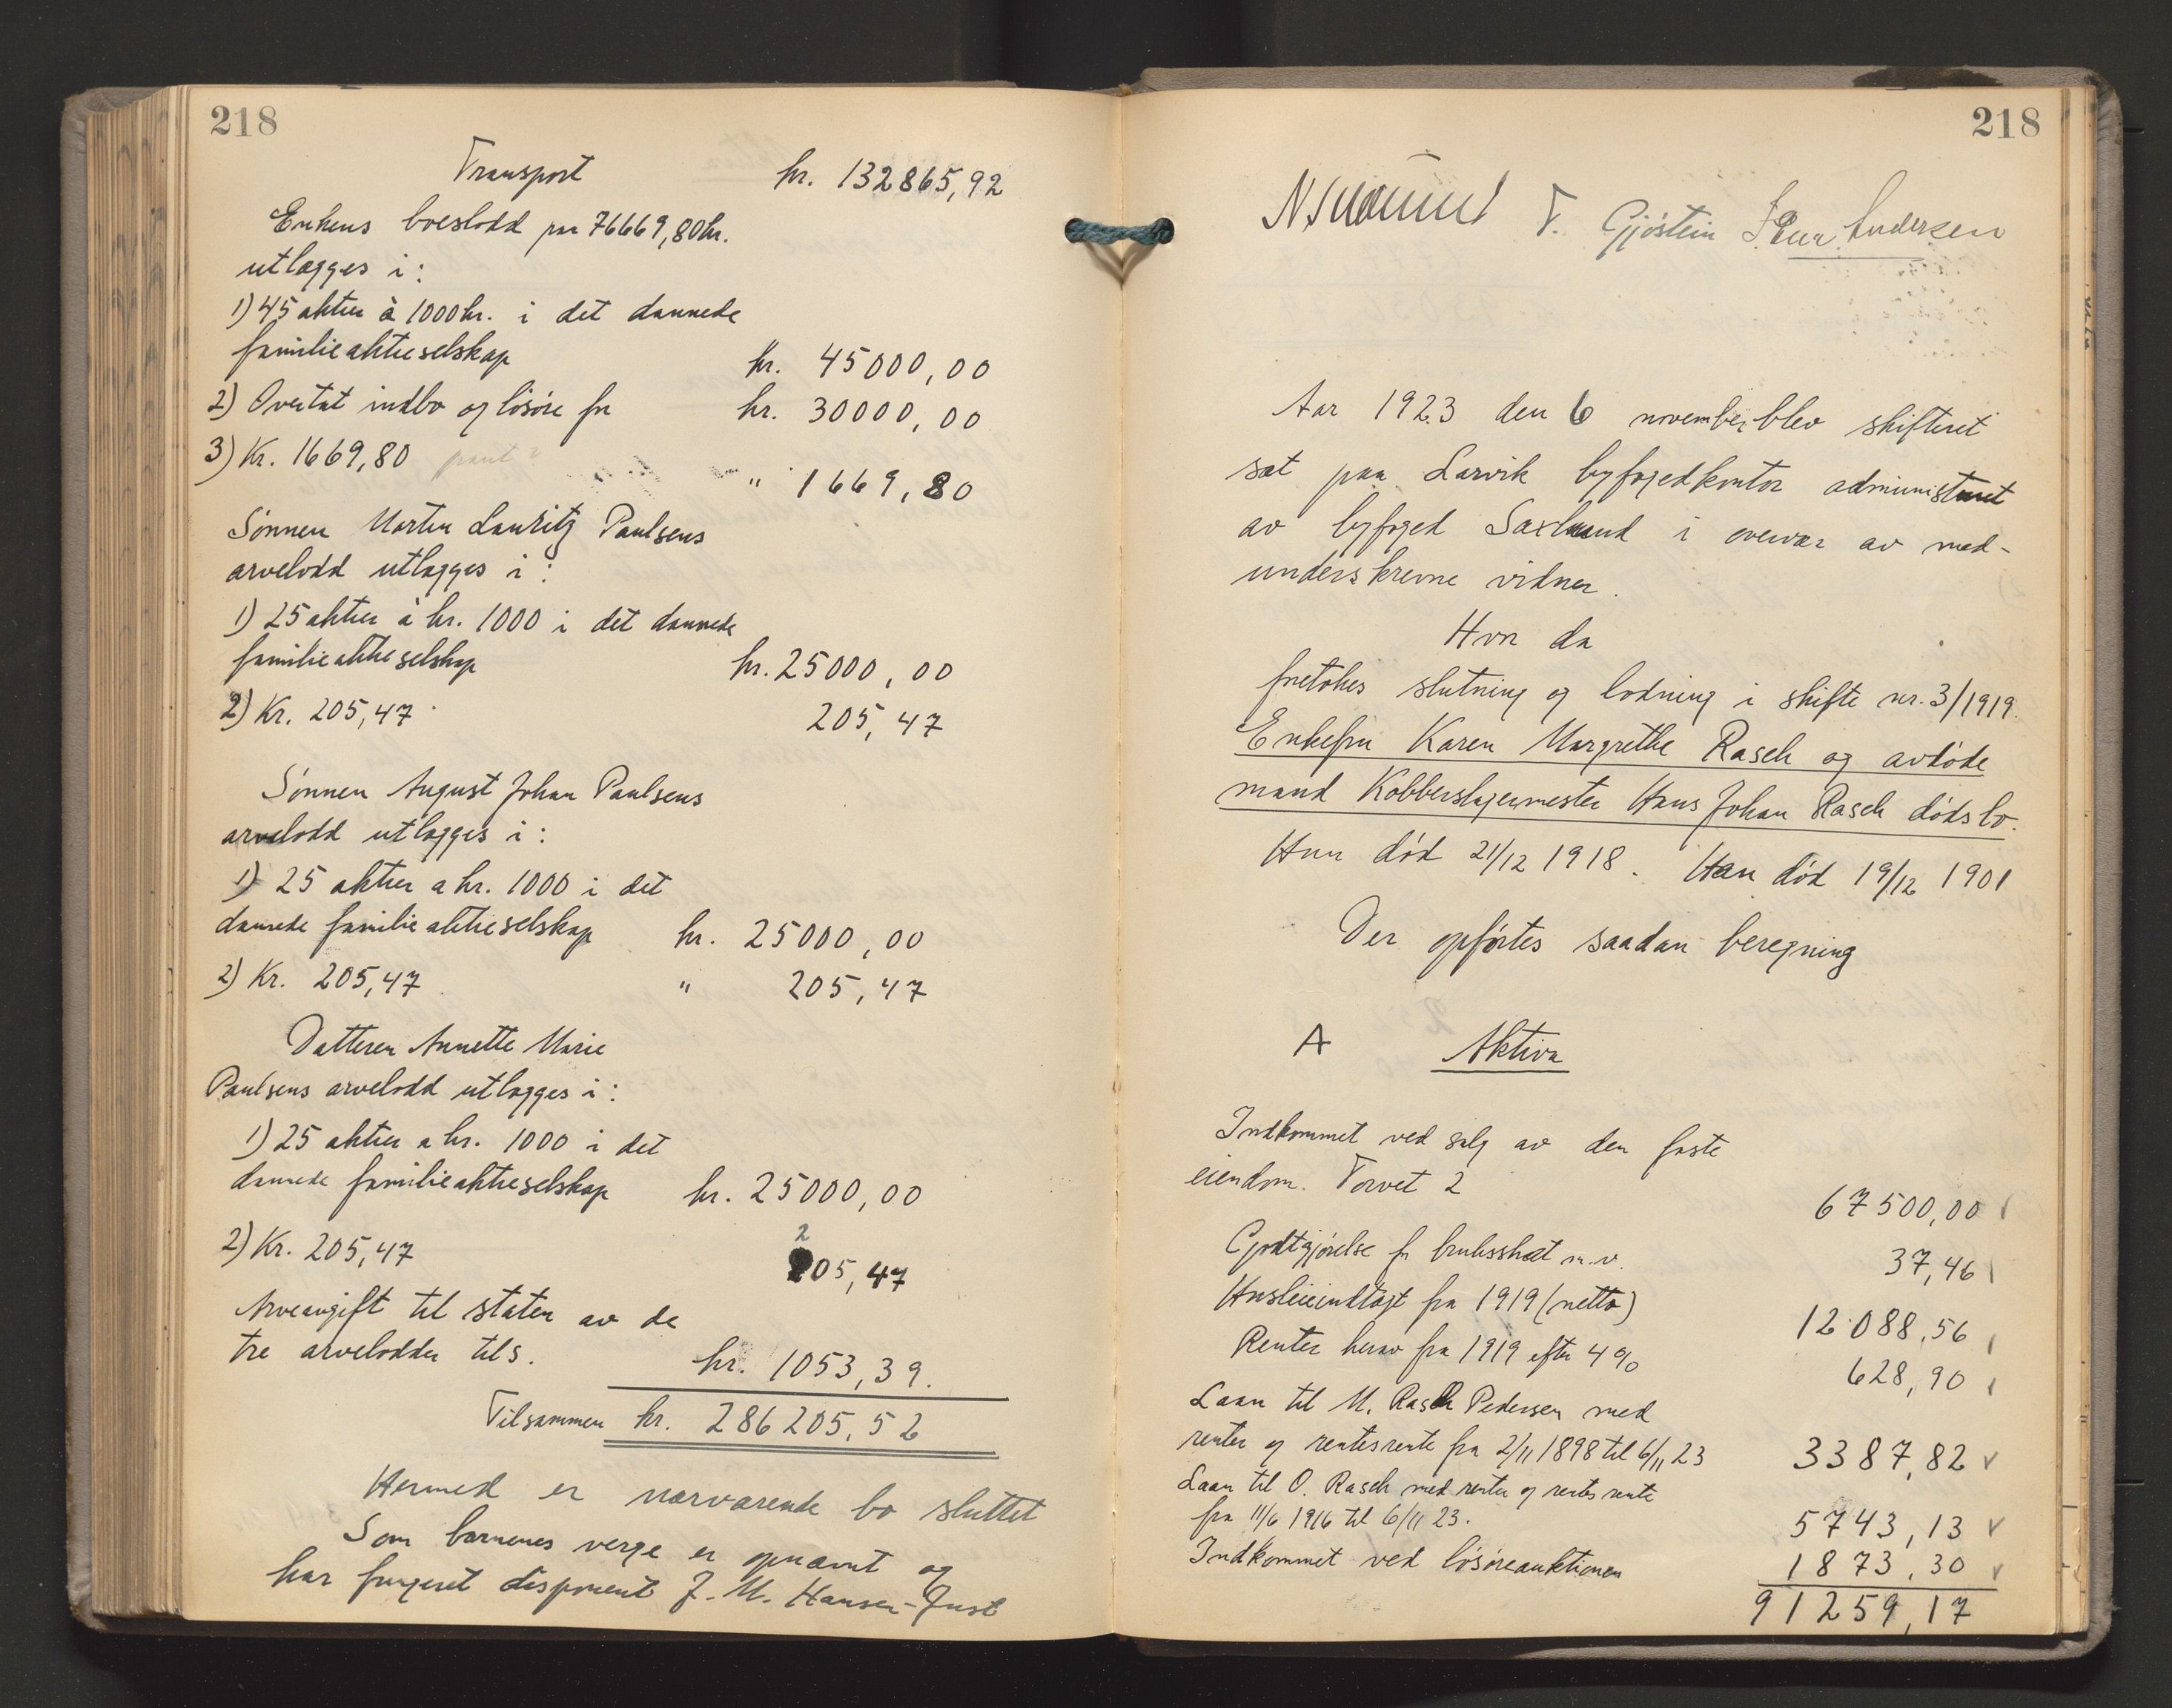 218
Transport kr. 132865,92
Enkens boeslodd paa 76669,80 kr.
utlægges i:
1) 45 aktier à 1000 kr. i det dannede
familieaktieselskap kr. 45000,00
2) Overtat indbo og løsøre for kr. 30000,00
3) Kr. 1669,80 " 1669,80
Sønnen Morten Lauritz Paulsens
arvelodd utlægges i:
1) 25 aktier à kr. 1000 i det dannede
familieaktieselskap kr. 25000,00
2) Kr. 205,47 205,47
Sønnen August Johan Paulsens
arvelodd utlægges i:
1) 25 aktier a kr. 1000 i det
dannede familieaktieselskap kr. 25000,00
2) Kr. 205,47 " 205,47
Datteren Annette Marie
Paulsens arvelodd utlægges i:
1) 25 aktier a kr. 1000 i det
dannede familieaktieselskap kr. 25000,00
2) Kr. 205,47 205,47
Arveavgift til staten av de
tre arvelodder tils. kr. 1053,39.
Tilsammen kr. 286205,52
Hermed er nærværende bo sluttet
Som barnenes verge er opnævnt og
har fungeret disponent J. M. Hansen-Just
218
T. Gjøstein Andersen
Aar 1923 den 6 november blev skifteret
sat paa Larvik byfogedkontor administreret
av byfoged Saxlund i overvær av med-
underskrevne vidner.
Hvor da
foretokes slutning og lodning i skifte nr. 3/1919.
Enkefru Karen Margrethe Rasch og avdøde
mand Kobberslagermester Hans Johan Rasch dødsbo.
Hun død 21/12 1918. Han død 19/12 1901
Der opførtes saadan beregning
A Aktiva
Indkommet ved salg av den faste
eiendom. Torvet 2 67500,00
Godtgjørelse for bruksskat m.v. 37,46
Husleieindtægt fra 1919 (netto) 12088,56
Renter herav fra 1919 efter 4% 628,90
Laan til M. Rasch Pedersen med
renter og rentesrente fra 2/11 1898 til 6/11 23 3387,82
Laan til O. Rasch med renter og rentesrente
fra 11/6 1916 til 6/11 23. 5743,13
Indkommet ved løsøreauktionen 1873,30
91259,17